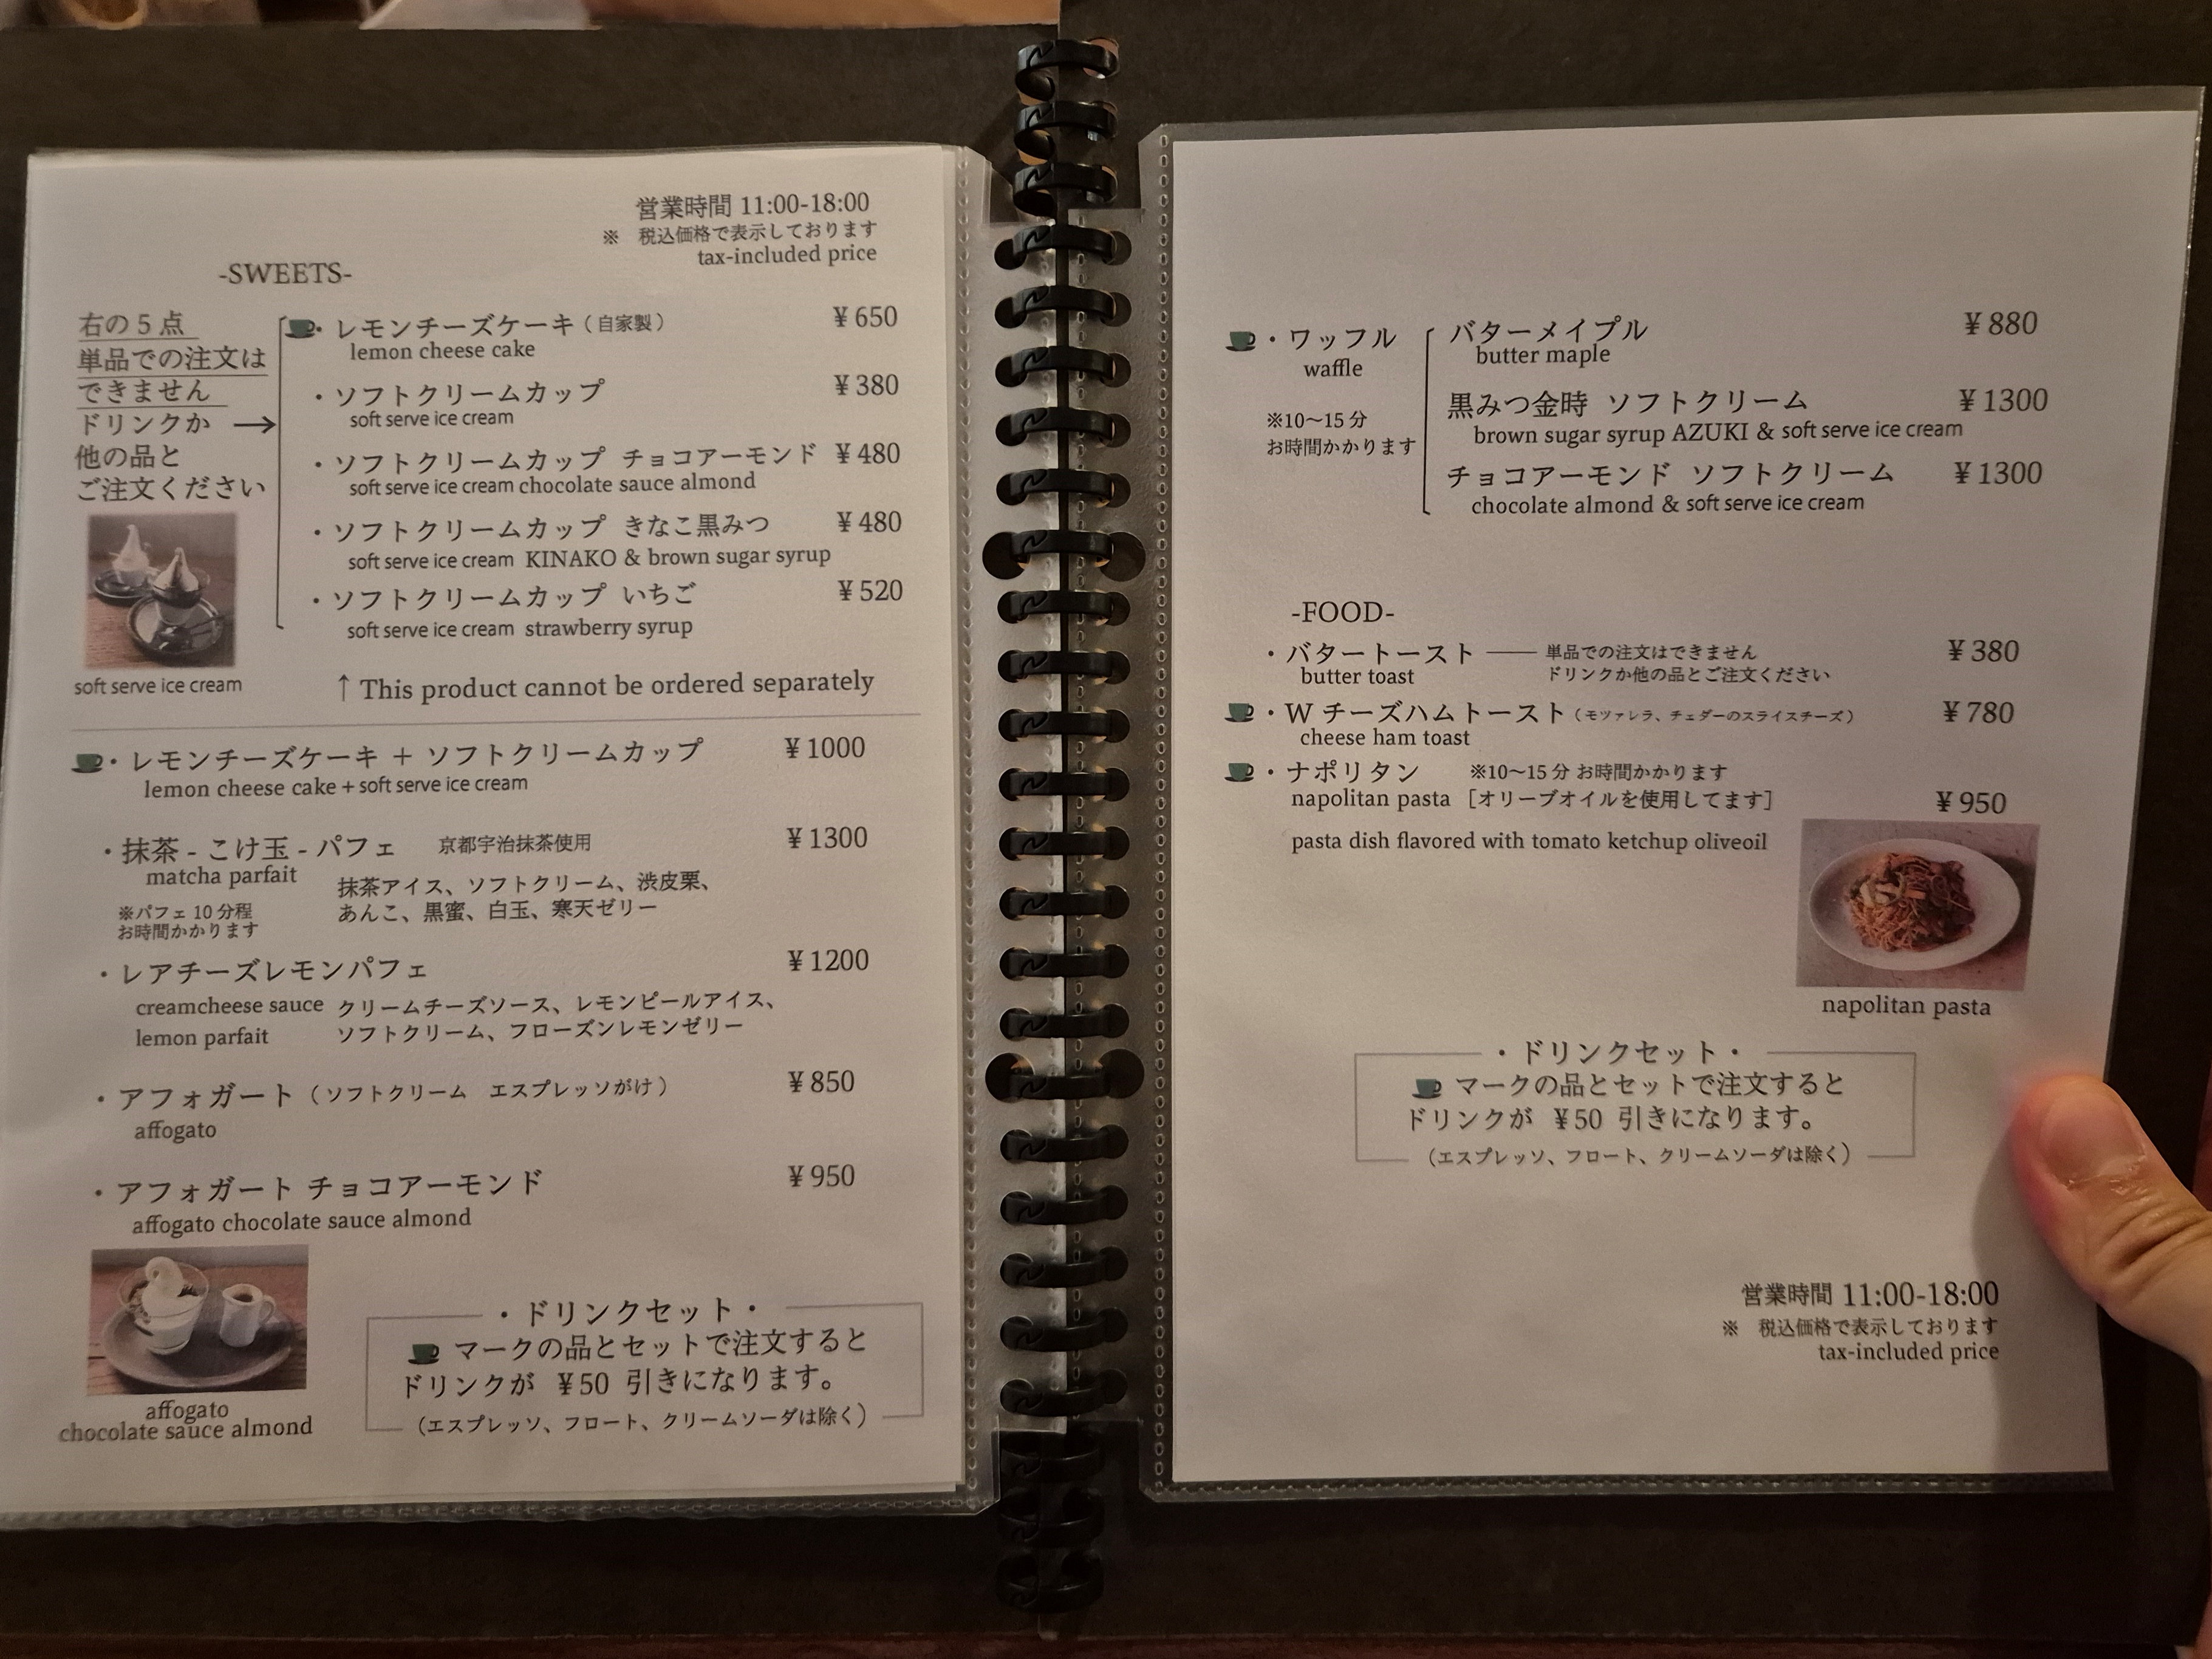 営業時間 11:00-18:00
※ 税込価格で表示しております
tax-included price
-SWEETS-
右の 5 点
単品での注文は
できません
ドリンクか →
他の品と
ご注文ください
soft serve ice cream
・レモンチーズケーキ（自家製） ¥650
lemon cheese cake
・ソフトクリームカップ ¥380
soft serve ice cream
・ソフトクリームカップ チョコアーモンド ¥480
soft serve ice cream chocolate sauce almond
・ソフトクリームカップ きなこ黒みつ ¥480
soft serve ice cream KINAKO & brown sugar syrup
・ソフトクリームカップ いちご ¥520
soft serve ice cream strawberry syrup
↑ This product cannot be ordered separately
・レモンチーズケーキ ＋ ソフトクリームカップ ¥1000
lemon cheese cake + soft serve ice cream
・抹茶 - こけ玉 - パフェ 京都宇治抹茶使用 ¥1300
matcha parfait
抹茶アイス、ソフトクリーム、渋皮栗、
あんこ、黒蜜、白玉、寒天ゼリー
※パフェ 10 分程
お時間かかります
・レアチーズレモンパフェ ¥1200
creamcheese sauce クリームチーズソース、レモンピールアイス、
lemon parfait ソフトクリーム、フローズンレモンゼリー
・アフォガート（ソフトクリーム エスプレッソがけ） ¥850
affogato
・アフォガート チョコアーモンド ¥950
affogato chocolate sauce almond
affogato
chocolate sauce almond
・ドリンクセット・
マークの品とセットで注文すると
ドリンクが ¥50 引きになります。
（エスプレッソ、フロート、クリームソーダは除く）
・ワッフル
waffle
※10～15 分
お時間かかります
バターメイプル ¥880
butter maple
黒みつ金時 ソフトクリーム ¥1300
brown sugar syrup AZUKI & soft serve ice cream
チョコアーモンド ソフトクリーム ¥1300
chocolate almond & soft serve ice cream
-FOOD-
・バタートースト 単品での注文はできません ¥380
butter toast ドリンクか他の品とご注文ください
・W チーズハムトースト（モツァレラ、チェダーのスライスチーズ） ¥780
cheese ham toast
・ナポリタン ※10～15 分 お時間かかります
napolitan pasta ［オリーブオイルを使用してます］ ¥950
pasta dish flavored with tomato ketchup oliveoil
napolitan pasta
・ドリンクセット・
マークの品とセットで注文すると
ドリンクが ¥50 引きになります。
（エスプレッソ、フロート、クリームソーダは除く）
営業時間 11:00-18:00
※ 税込価格で表示しております
tax-included price